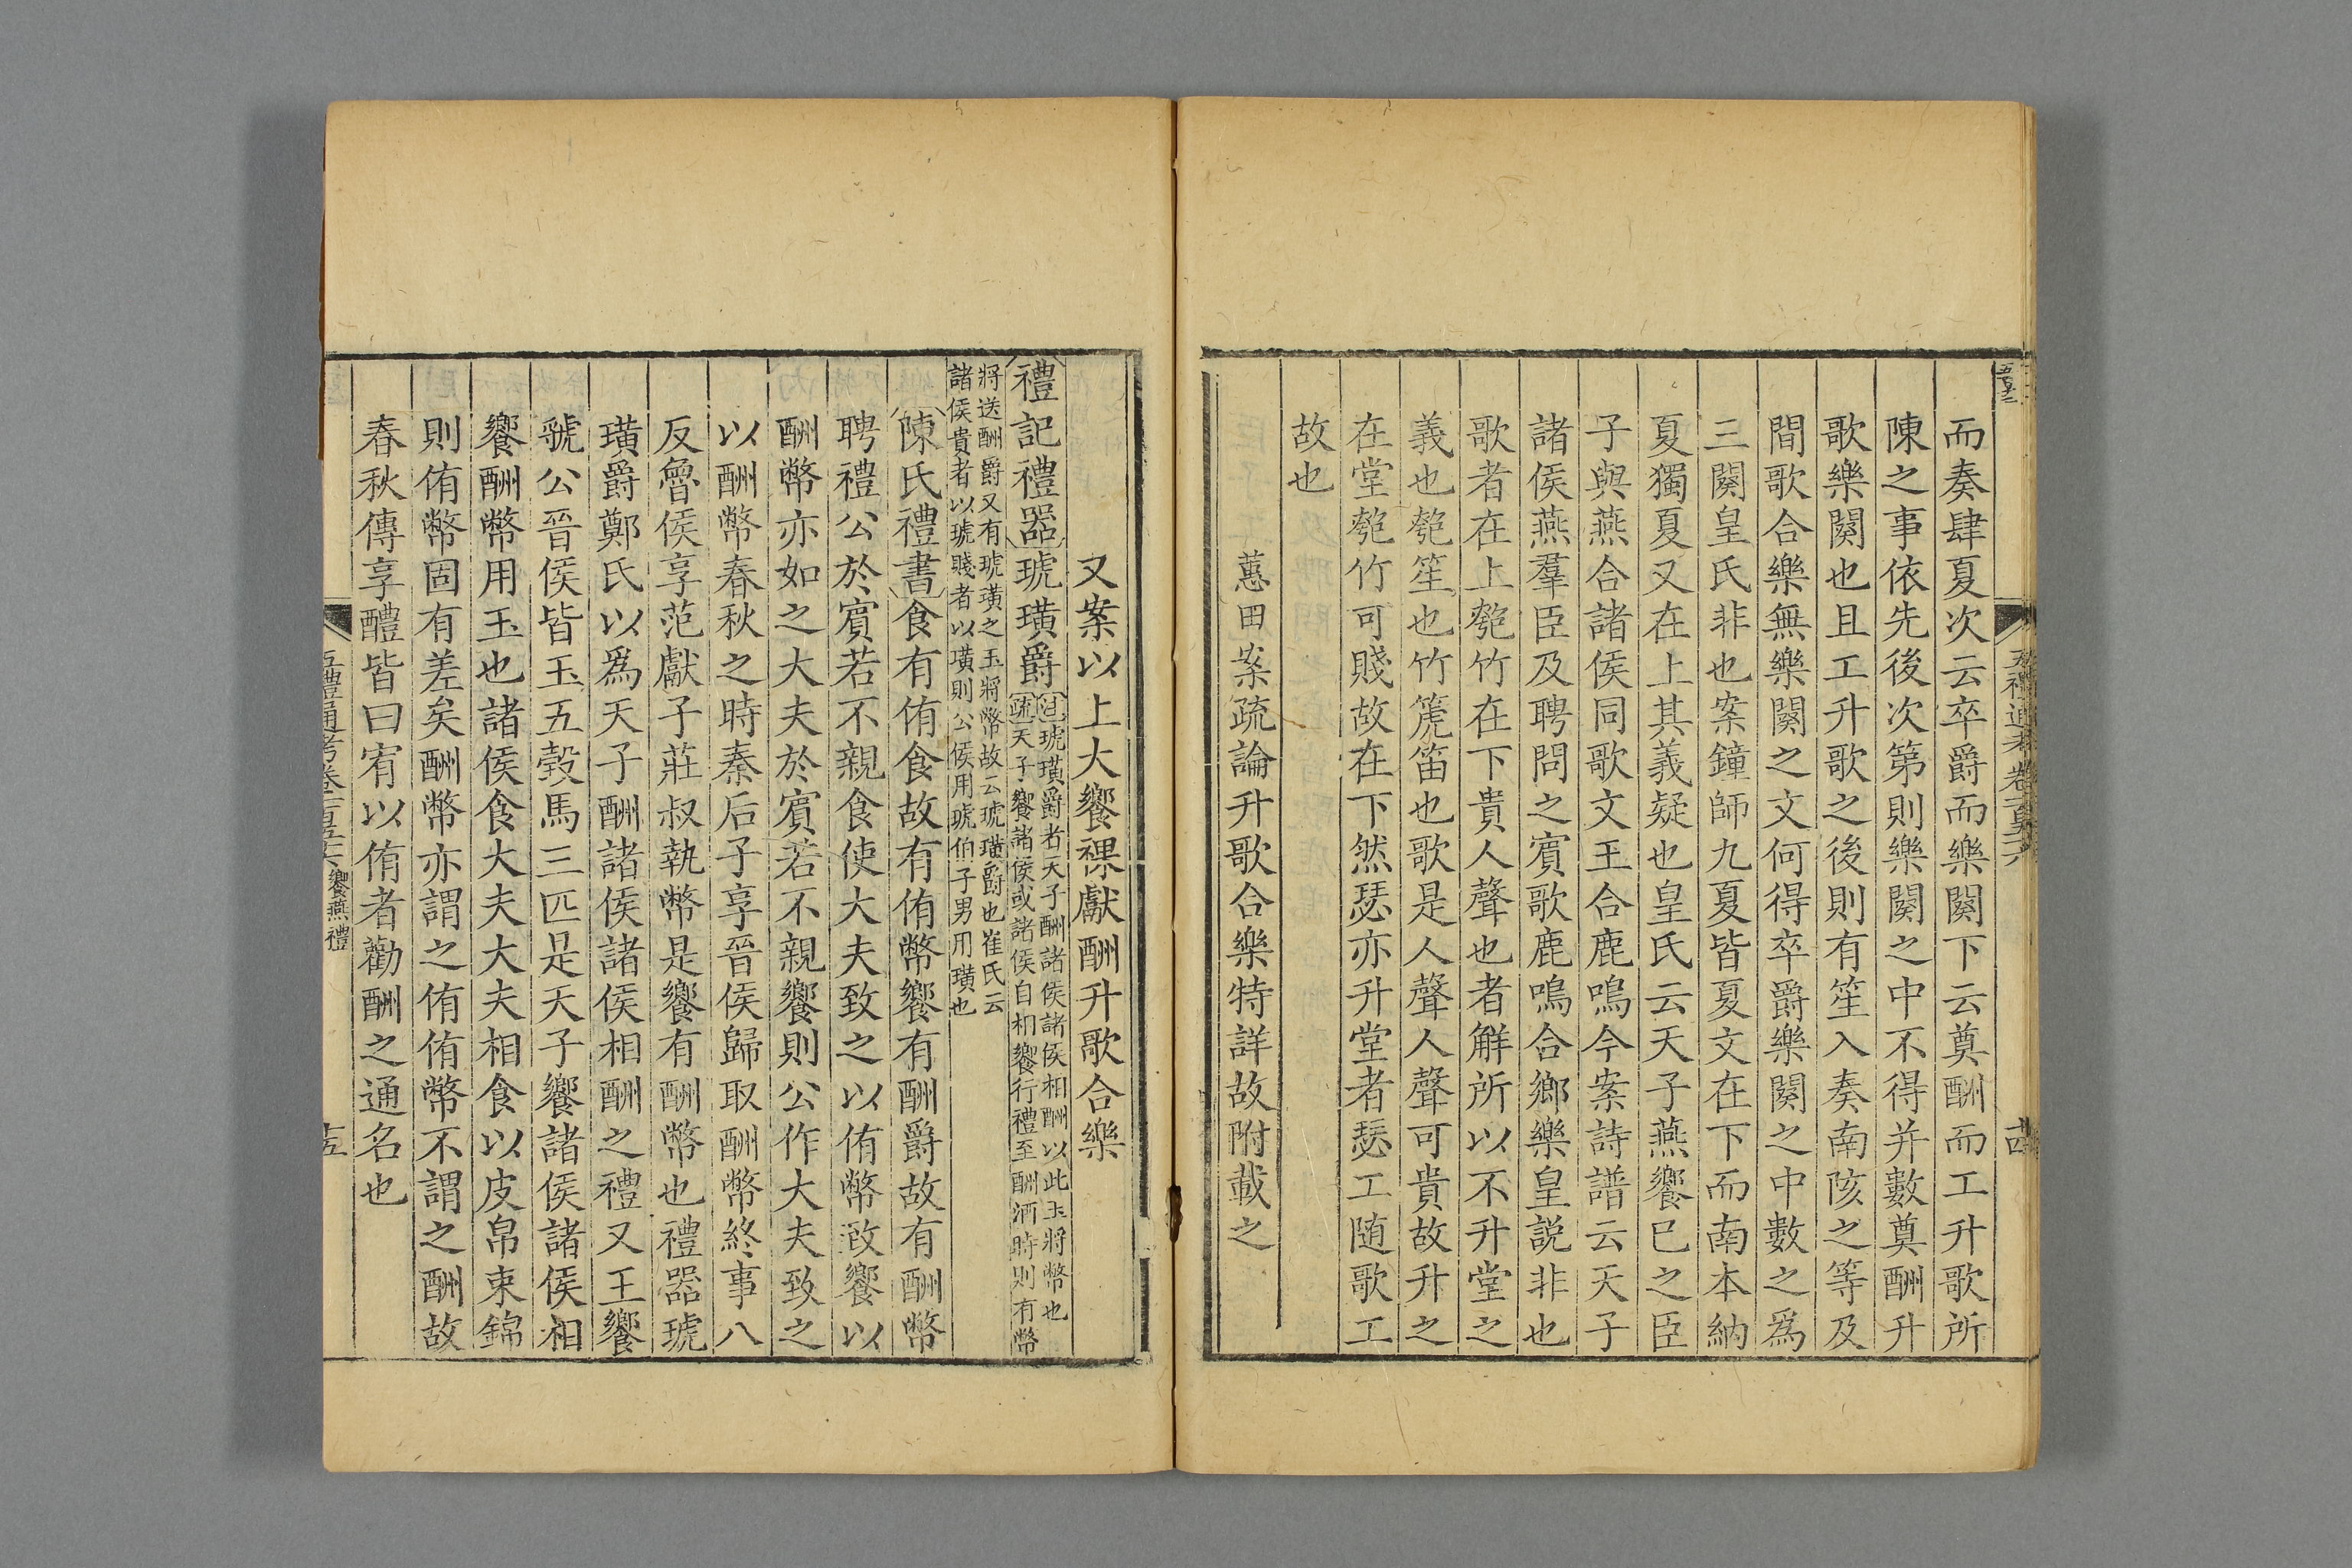 而奏肆夏次云卒爵而樂闋下云奠酬而工升歌所
陳之事依先後次第則樂闋之中不得并數奠酬升
歌樂闋也且工升歌之後則有笙入奏南陔之等及
間歌合樂無樂闋之文何得卒爵樂闋之中數之爲
三闋皇氏非也案鐘師九夏皆夏文在下而南本納
夏獨夏又在上其義疑也皇氏云天子燕饗已之臣
子與燕合諸侯同歌文王合鹿鳴今案詩譜云天子
諸侯燕羣臣及聘問之賓歌鹿鳴合鄉樂皇説非也
歌者在上匏竹在下貴人聲也者解所以不升堂之
義也匏笙也竹篪笛也歌是人聲人聲可貴故升之
在堂匏竹可賤故在下然瑟亦升堂者瑟工随歌工
故也
蕙田案疏論升歌合樂特詳故附載之
五禮通考卷一百五十六
十四
又案以上大饗祼獻酬升歌合樂
禮記禮器琥璜爵注琥璜爵者天子酬諸侯諸侯相酬以此玉將幣也
疏天子饗諸侯或諸侯自相饗行禮至酬酒時則有幣
將送酬爵又有琥璜之玉將幣故云琥璜爵也崔氏云
諸侯貴者以琥賤者以璜則公侯用琥伯子男用璜也
陳氏禮書食有侑食故有侑幣饗有酬爵故有酬幣
聘禮公於賓若不親食使大夫致之以侑幣致饗以
酬幣亦如之大夫於賓若不親饗則公作大夫致之
以酬幣春秋之時秦后子享晉侯歸取酬幣終事八
反魯侯享范獻子莊叔執幣是饗有酬幣也禮器琥
璜爵鄭氏以爲天子酬諸侯諸侯相酬之禮又王饗
虢公晉侯皆玉五瑴馬三匹是天子饗諸侯諸侯相
饗酬幣用玉也諸侯食大夫大夫相食以皮帛束錦
則侑幣固有差矣酬幣亦謂之侑侑幣不謂之酬故
春秋傳享醴皆曰宥以侑者勸酬之通名也
五禮通考卷一百五十六 饗燕禮
十五